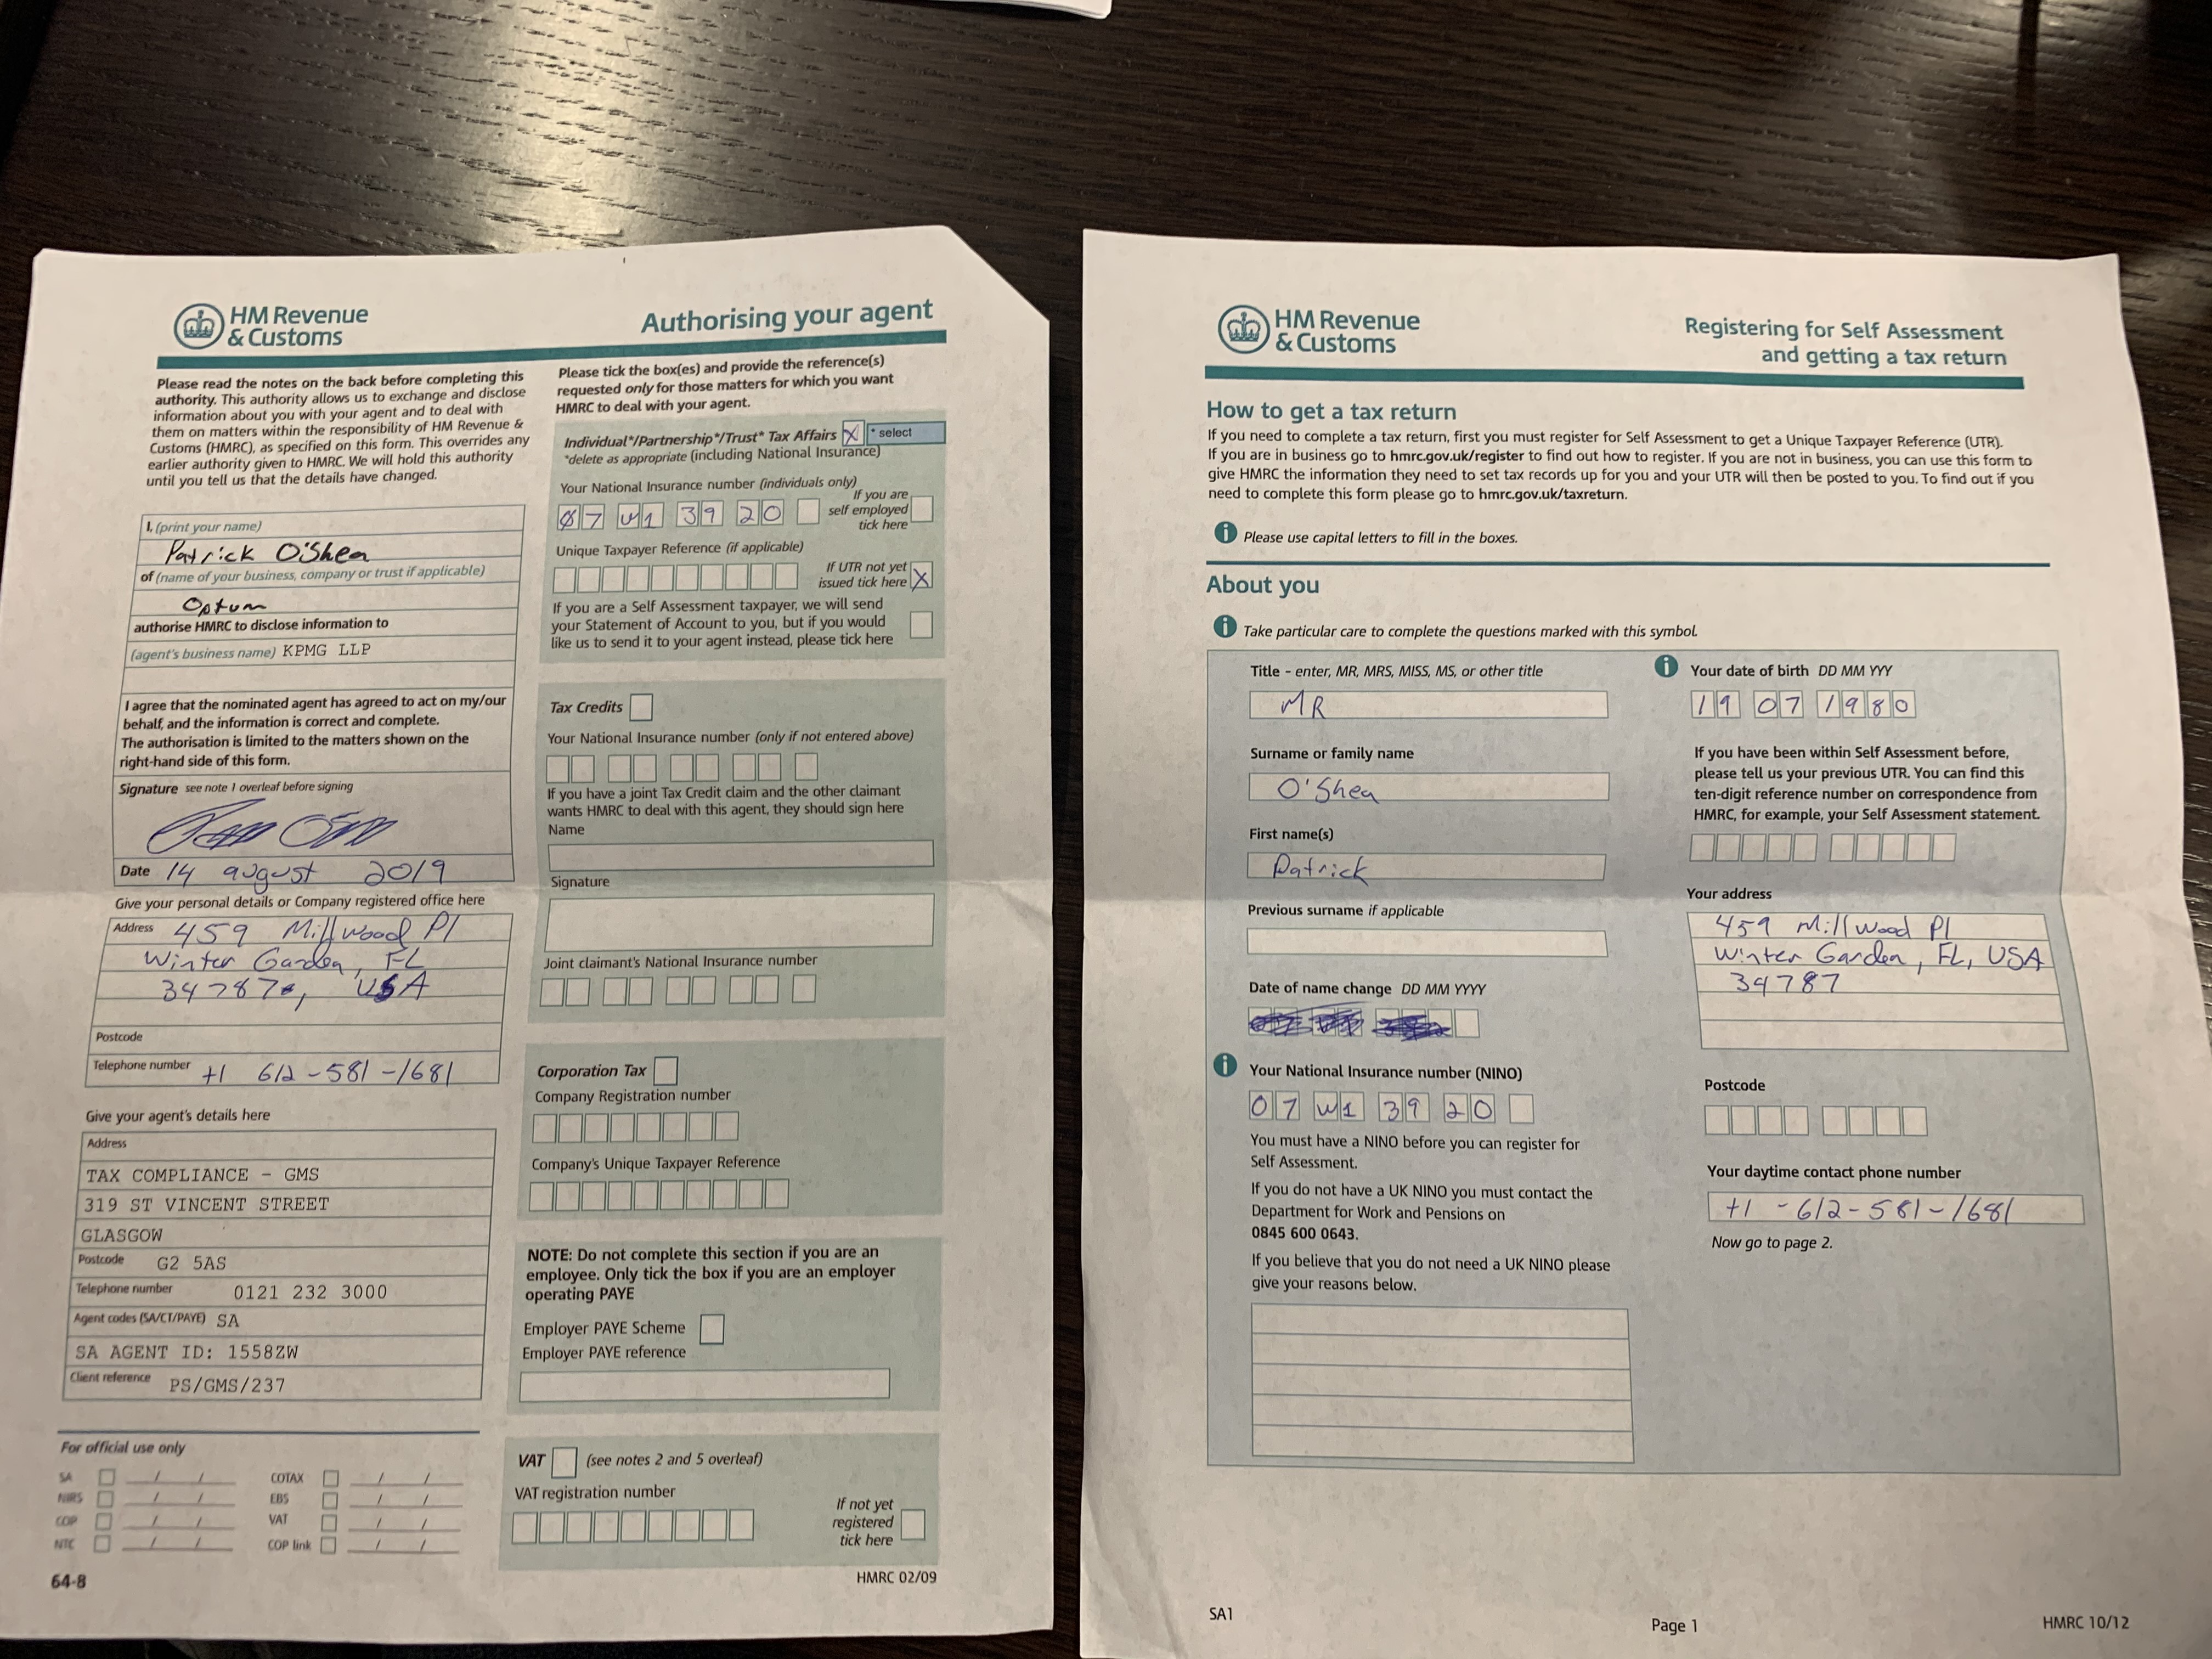 HM Revenue
& Customs
Authorising your agent
Please read the notes on the back before completing this
authority. This authority allows us to exchange and disclose
information about you with your agent and to deal with
them on matters within the responsibility of HM Revenue &
Customs (HMRC), as specified on this form. This overrides any
earlier authority given to HMRC. We will hold this authority
until you tell us that the details have changed.
I, (print your name)
Patrick O'Shea
of (name of your business, company or trust if applicable)
Optum
authorise HMRC to disclose information to
(agent's business name) KPMG LLP
I agree that the nominated agent has agreed to act on my/our
behalf, and the information is correct and complete.
The authorisation is limited to the matters shown on the
right-hand side of this form.
Signature see note 1 overleaf before signing
Date 14 august 2019
Give your personal details or Company registered office here
Address 459 Millwood Pl
Winter Garden, FL
34787, USA
Postcode
Telephone number +1 612-581-1681
Give your agent's details here
Address
TAX COMPLIANCE - GMS
319 ST VINCENT STREET
GLASGOW
Postcode G2 5AS
Telephone number 0121 232 3000
Agent codes (SA/CT/PAYE) SA
SA AGENT ID: 1558ZW
Client reference PS/GMS/237
For official use only
SA / / COTAX / /
NIRS / / EBS / /
COP / / VAT / /
NTC / / COP link / /
64-8
Please tick the box(es) and provide the reference(s)
requested only for those matters for which you want
HMRC to deal with your agent.
Individual*/Partnership*/Trust* Tax Affairs X * select
*delete as appropriate (including National Insurance)
Your National Insurance number (individuals only)
07 W1 39 20
If you are
self employed
tick here
Unique Taxpayer Reference (if applicable)
If UTR not yet
issued tick here X
If you are a Self Assessment taxpayer, we will send
your Statement of Account to you, but if you would
like us to send it to your agent instead, please tick here
Tax Credits
Your National Insurance number (only if not entered above)
If you have a joint Tax Credit claim and the other claimant
wants HMRC to deal with this agent, they should sign here
Name
Signature
Joint claimant's National Insurance number
Corporation Tax
Company Registration number
Company's Unique Taxpayer Reference
NOTE: Do not complete this section if you are an
employee. Only tick the box if you are an employer
operating PAYE
Employer PAYE Scheme
Employer PAYE reference
VAT (see notes 2 and 5 overleaf)
VAT registration number
If not yet
registered
tick here
HMRC 02/09
HM Revenue
& Customs
Registering for Self Assessment
and getting a tax return
How to get a tax return
If you need to complete a tax return, first you must register for Self Assessment to get a Unique Taxpayer Reference (UTR).
If you are in business go to hmrc.gov.uk/register to find out how to register. If you are not in business, you can use this form to
give HMRC the information they need to set tax records up for you and your UTR will then be posted to you. To find out if you
need to complete this form please go to hmrc.gov.uk/taxreturn.
Please use capital letters to fill in the boxes.
About you
Take particular care to complete the questions marked with this symbol.
Title - enter, MR, MRS, MISS, MS, or other title
MR
Surname or family name
O'Shea
First name(s)
Patrick
Previous surname if applicable
Date of name change DD MM YYYY
Your National Insurance number (NINO)
07 W1 39 20
You must have a NINO before you can register for
Self Assessment.
If you do not have a UK NINO you must contact the
Department for Work and Pensions on
0845 600 0643.
If you believe that you do not need a UK NINO please
give your reasons below.
Your date of birth DD MM YYY
19 07 1980
If you have been within Self Assessment before,
please tell us your previous UTR. You can find this
ten-digit reference number on correspondence from
HMRC, for example, your Self Assessment statement.
Your address
459 Millwood Pl
Winter Garden, FL, USA
34787
Postcode
Your daytime contact phone number
+1 - 612 - 581 - 1681
Now go to page 2.
SA1
Page 1
HMRC 10/12